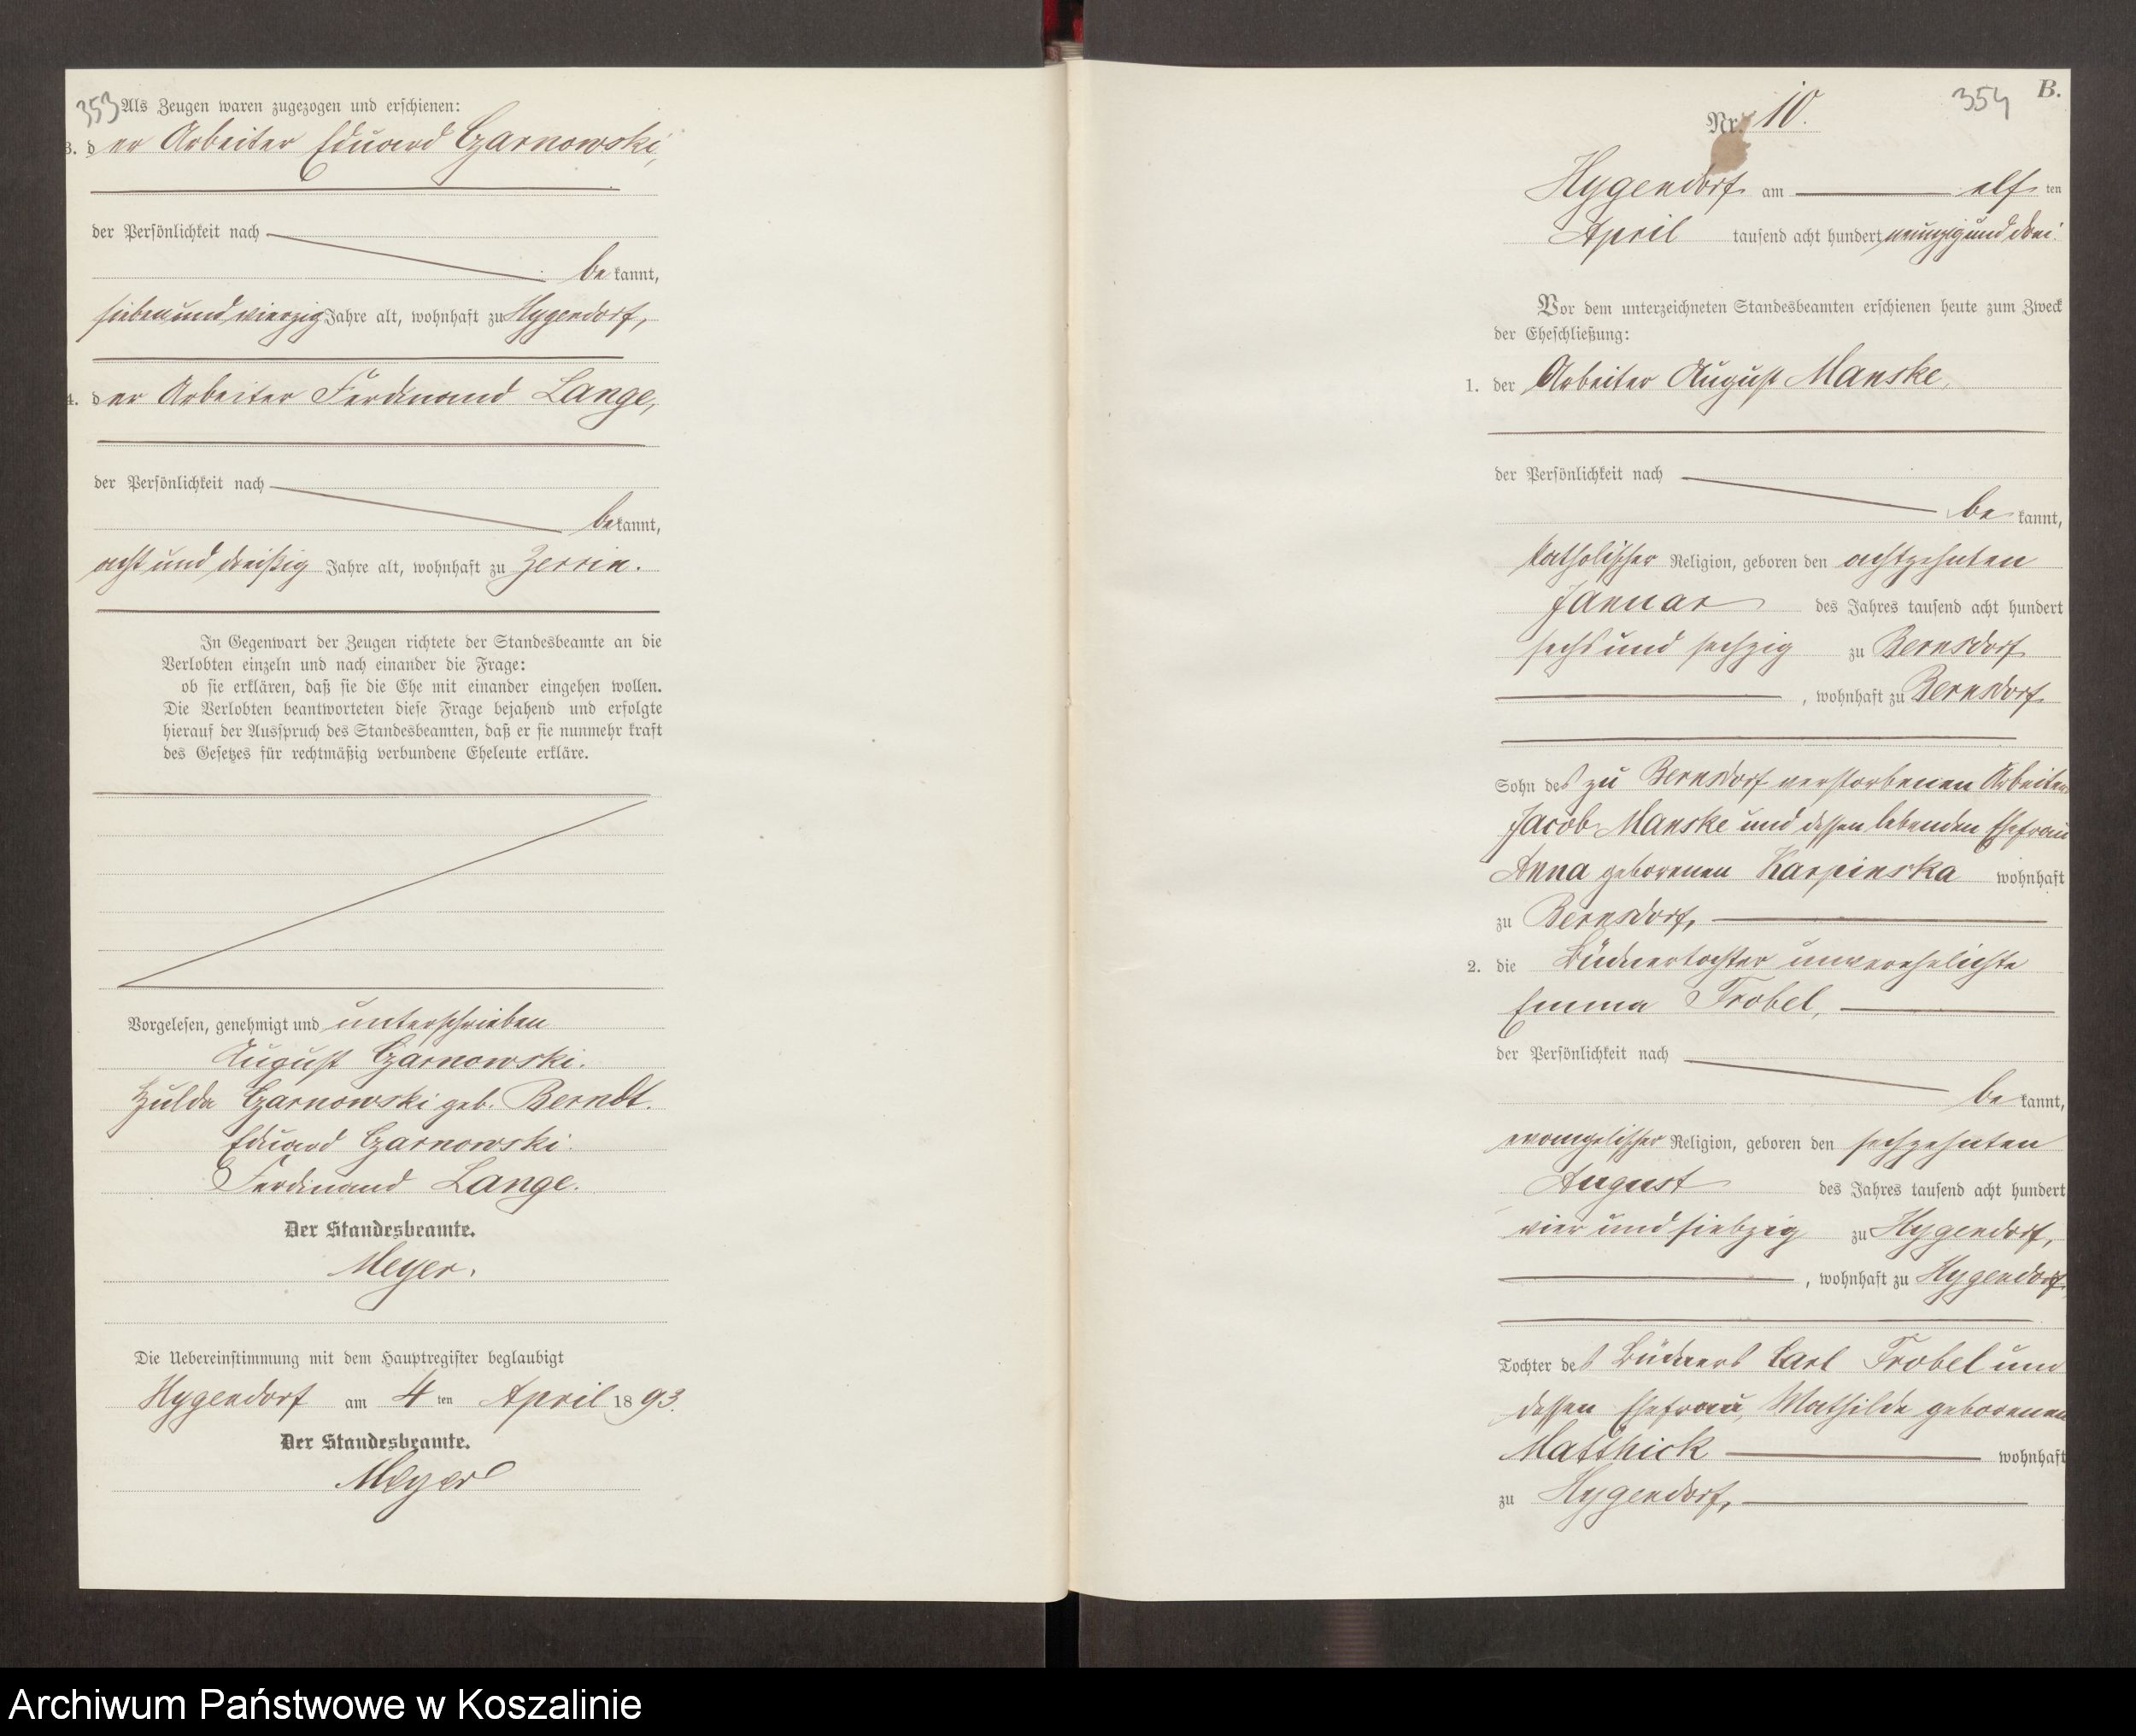 353
Als Zeugen waren zugezogen und erschienen:
3. der Arbeiter Eduard Czarnowski,
der Persönlichkeit nach
bekannt,
siebenundvierzig Jahre alt, wohnhaft zu Hygendorf,
4. der Arbeiter Ferdinand Lange,
der Persönlichkeit nach
bekannt,
acht und dreißig Jahre alt, wohnhaft zu Zerrin.
In Gegenwart der Zeugen richtete der Standesbeamte an die
Verlobten einzeln und nach einander die Frage:
ob sie erklären, daß sie die Ehe mit einander eingehen wollen.
Die Verlobten beantworteten diese Frage bejahend und erfolgte
hierauf der Ausspruch des Standesbeamten, daß er sie nunmehr kraft
des Gesetzes für rechtmäßig verbundene Eheleute erkläre.
Vorgelesen, genehmigt und unterschrieben
August Czarnowski.
Hulda Czarnowski geb. Berndt.
Eduard Czarnowski.
Ferdinand Lange.
Der Standesbeamte.
Meyer.
Die Uebereinstimmung mit dem Hauptregister beglaubigt
Hygendorf am 4ten April 1893.
Der Standesbeamte.
Meyer
354
B.
Nr. 10.
Hygendorf am elften
April tausend acht hundert neunzig und drei.
Vor dem unterzeichneten Standesbeamten erschienen heute zum Zweck
der Eheschließung:
1. der Arbeiter August Manske,
der Persönlichkeit nach
bekannt,
katholischer Religion, geboren den achtzehnten
Januar des Jahres tausend acht hundert
sechs und sechzig zu Bernsdorf
, wohnhaft zu Bernsdorf
Sohn des zu Bernsdorf verstorbenen Arbeiters
Jacob Manske und dessen lebenden Ehefrau
Anna geborenen Karpinska wohnhaft
zu Bernsdorf,
2. die Büdnertochter unverehelichte
Emma Trobel,
der Persönlichkeit nach
bekannt,
evangelischer Religion, geboren den sechzehnten
August des Jahres tausend acht hundert
vier und siebzig zu Hygendorf,
, wohnhaft zu Hygendorf,
Tochter des Büdners Carl Trobel und
dessen Ehefrau, Mathilde geborenen
Matthick wohnhaft
zu Hygendorf,
Archiwum Państwowe w Koszalinie